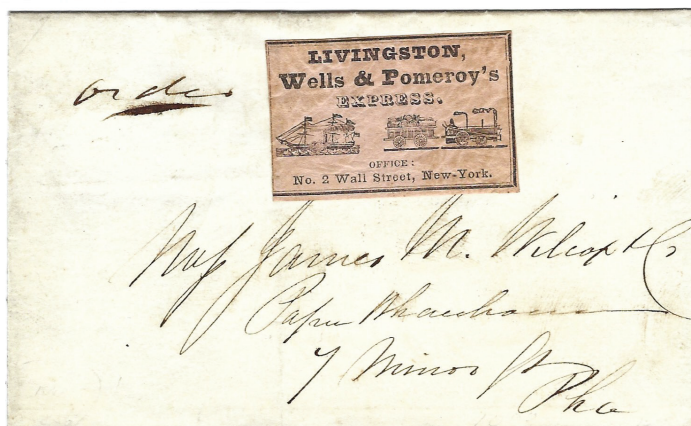 order
LIVINGSTON,
Wells & Pomeroy's
EXPRESS.
OFFICE:
No. 2 Wall Street, New-York.
Mess James M. Wilcox & Co
Paper Warehouse
7 Minor St
Pha